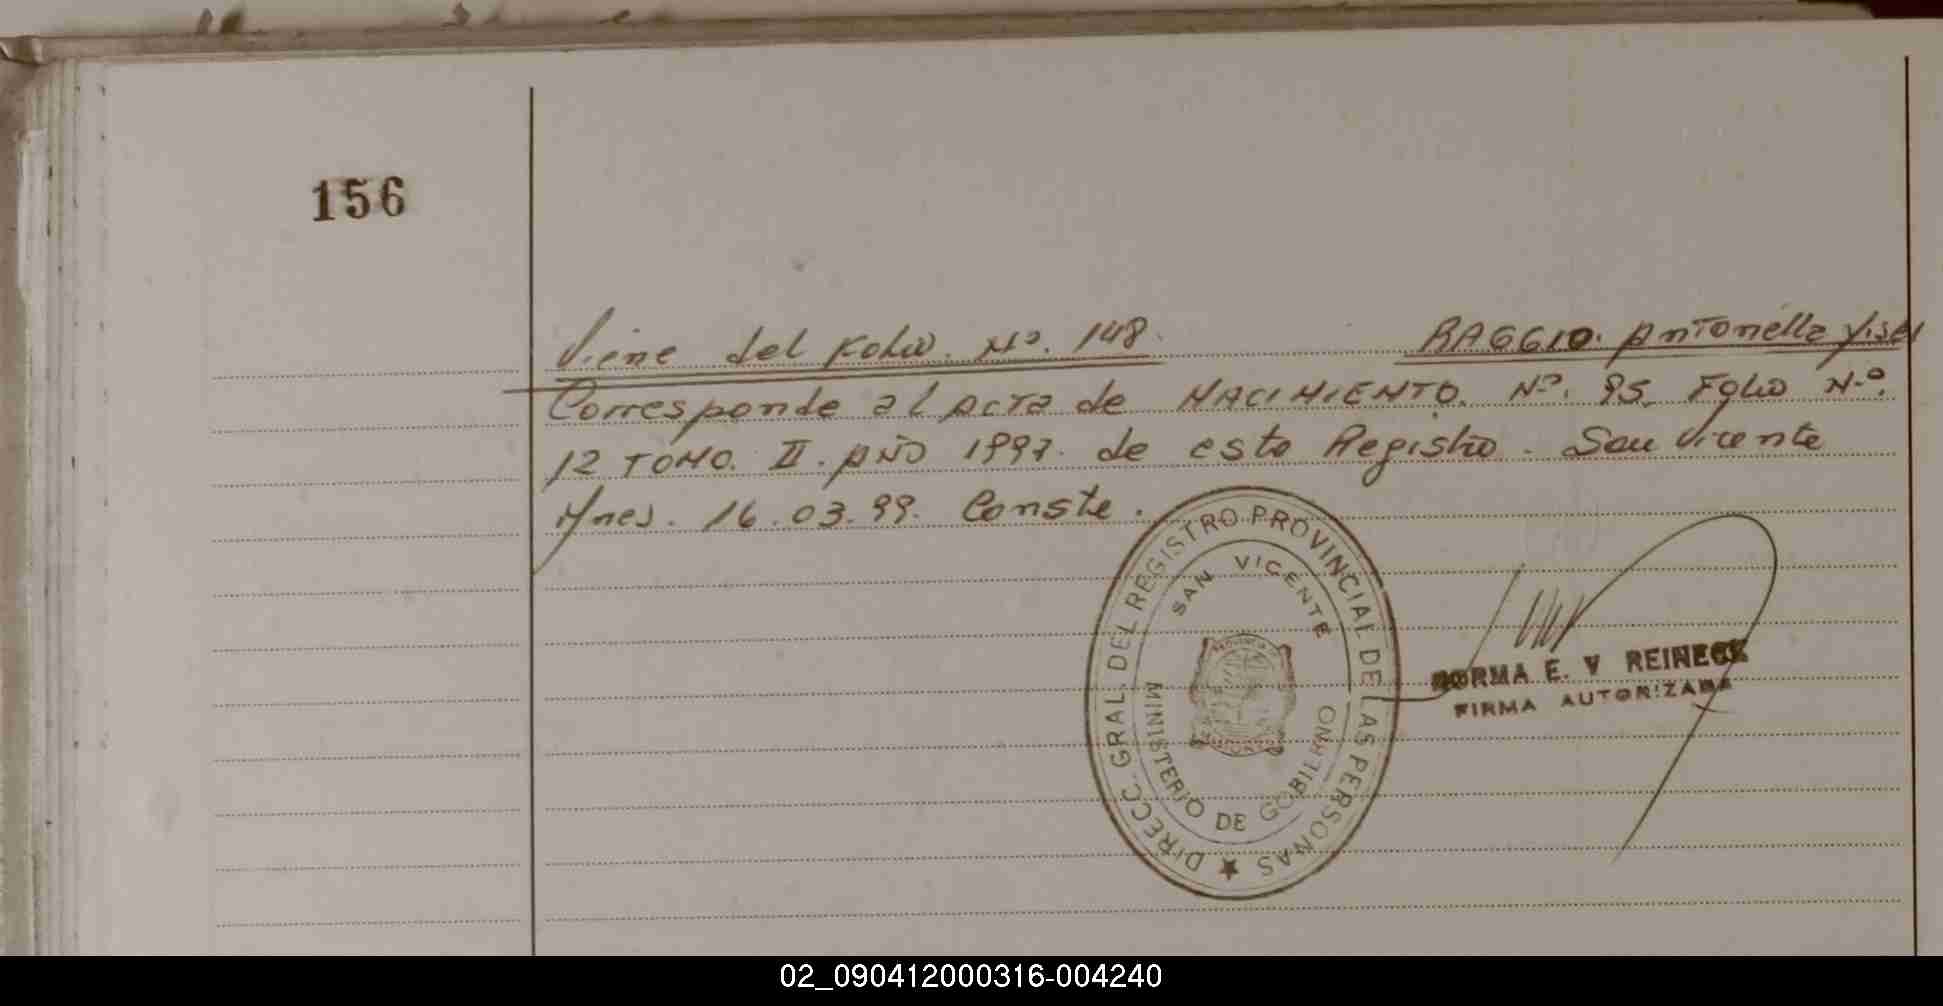 156
Viene del Folio. Nº. 148. RAGGIO. Antonella Yisel
Corresponde al Acta de NACIMIENTO. Nº. 95. Folio Nº.
12 TOMO. II. AÑO 1997. de este Registro. San Vicente
Mnes. 16.03.99. Conste.
DIRECC. GRAL. DEL REGISTRO PROVINCIAL DE LAS PERSONAS
SAN VICENTE
MINISTERIO DE GOBIERNO
NORMA E. V REINECK
FIRMA AUTORIZADA
02_090412000316-004240